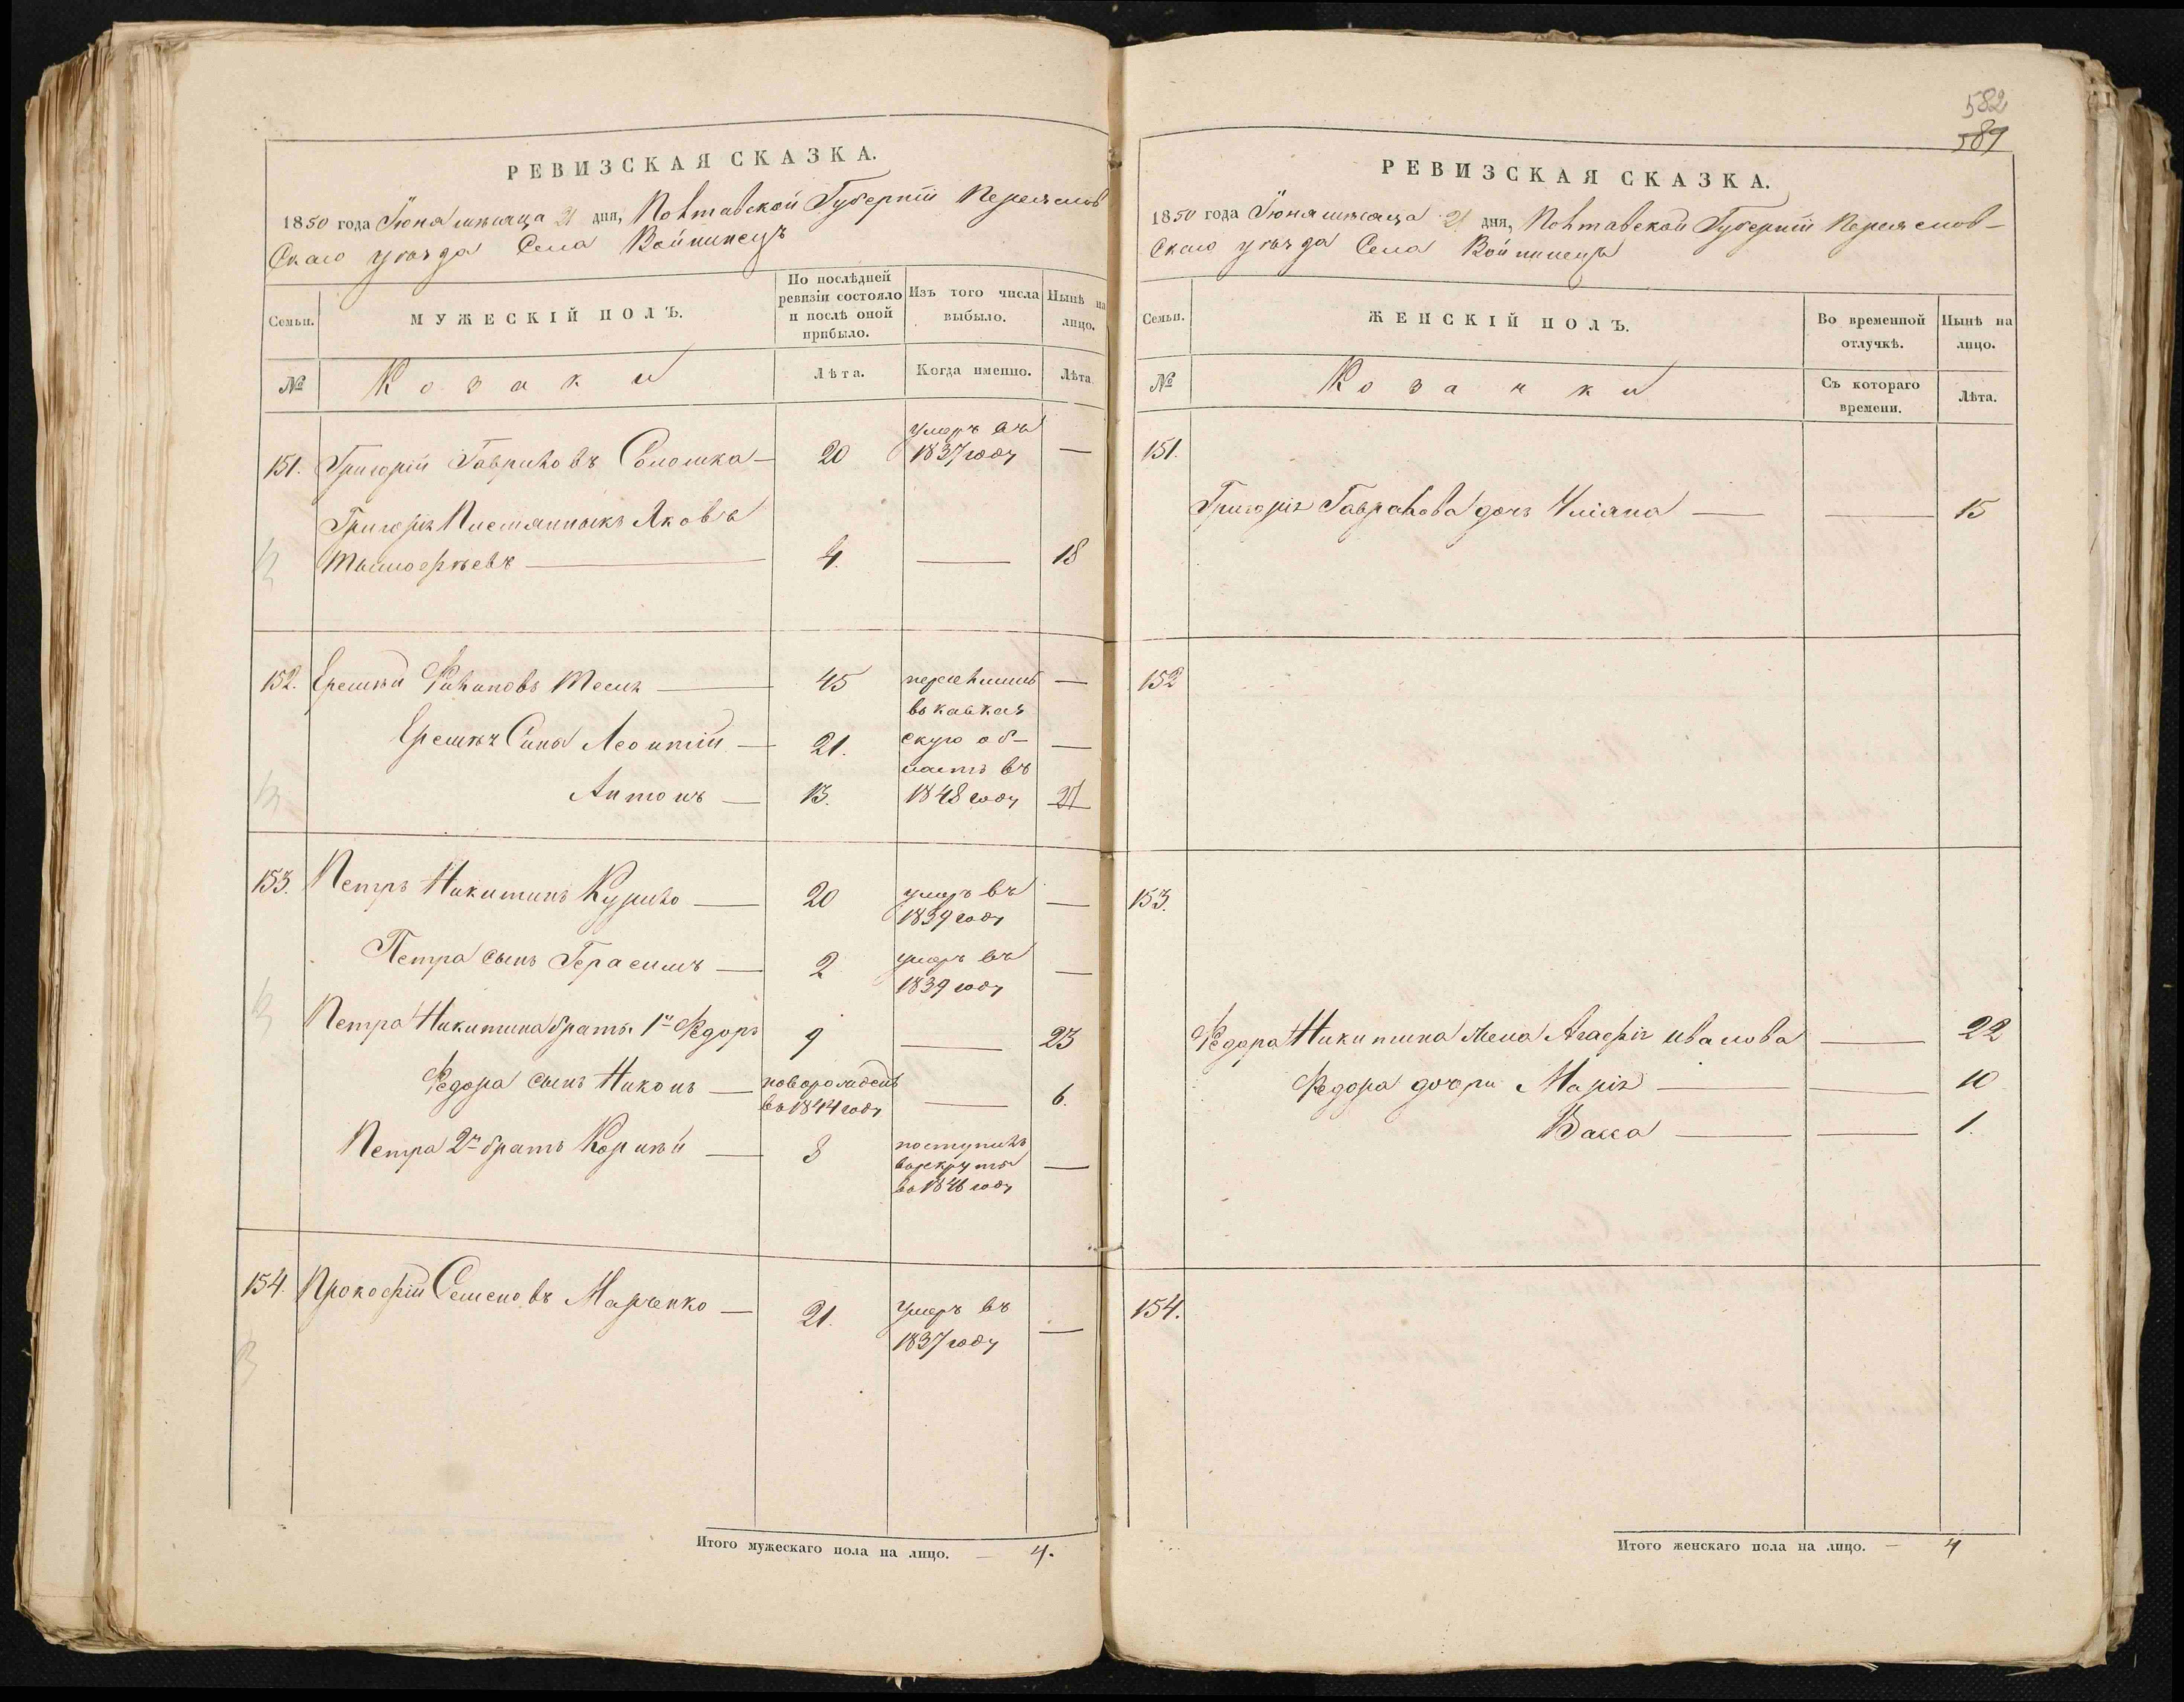 582
589
РЕВИЗСКАЯ СКАЗКА.
1850 года Іюня мѣсяца 21 дня, Полтавской Губерніи Переяслов
скаго уѣзда Села Войнинецъ
Семьи.
МУЖЕСКІЙ ПОЛЪ.
По послѣдней ревизіи состояло и послѣ оной прибыло.
Изъ того числа выбыло.
Нынѣ на лицо.
№
Козаки
Лѣта.
Когда именно.
Лѣта.
151. Григорій Гавриловъ Соломка — 20 умеръ въ 1837 году —
Григорія Яковъ
4. — 18
152. Еремѣй Филиповъ — 45 —
Еремѣя Сына Леонтій — 21. —
Антонъ — 13. 27
въ кавказ
скую об-
ласть въ
1848 году
153. Петръ Никитинъ Курило — 20 умеръ въ 1839 году —
Петра сынъ Герасимъ — 2 умеръ въ 1839 году —
Петра Никитина братья 1й Федоръ 9 — 23
Федора сынъ Никонъ — новорожденъ въ 1844 году — 6.
Петра 2й братъ Корнѣй — 8 поступилъ въ рекруты въ 1846 году —
154. Прокофій Семеновъ Марченко — 21. Умеръ въ 1837 году —
Итого мужескаго пола на лицо. — 4.
РЕВИЗСКАЯ СКАЗКА.
1850 года Іюня мѣсяца 21 дня, Полтавской Губерніи Переяслов-
скаго уѣзда Села Войнинецъ
Семьи.
ЖЕНСКІЙ ПОЛЪ.
Во временной отлучкѣ.
Нынѣ на лицо.
№
Козачки
Съ котораго времени.
Лѣта.
151.
Григорія Гаврилова дочь Уліяна — — 15
152
153.
Федора Никитина жена Агафія Иванова — 22
Федора дочери Марія — — 10
Васса — — 1.
154.
Итого женскаго пола на лицо. — 4